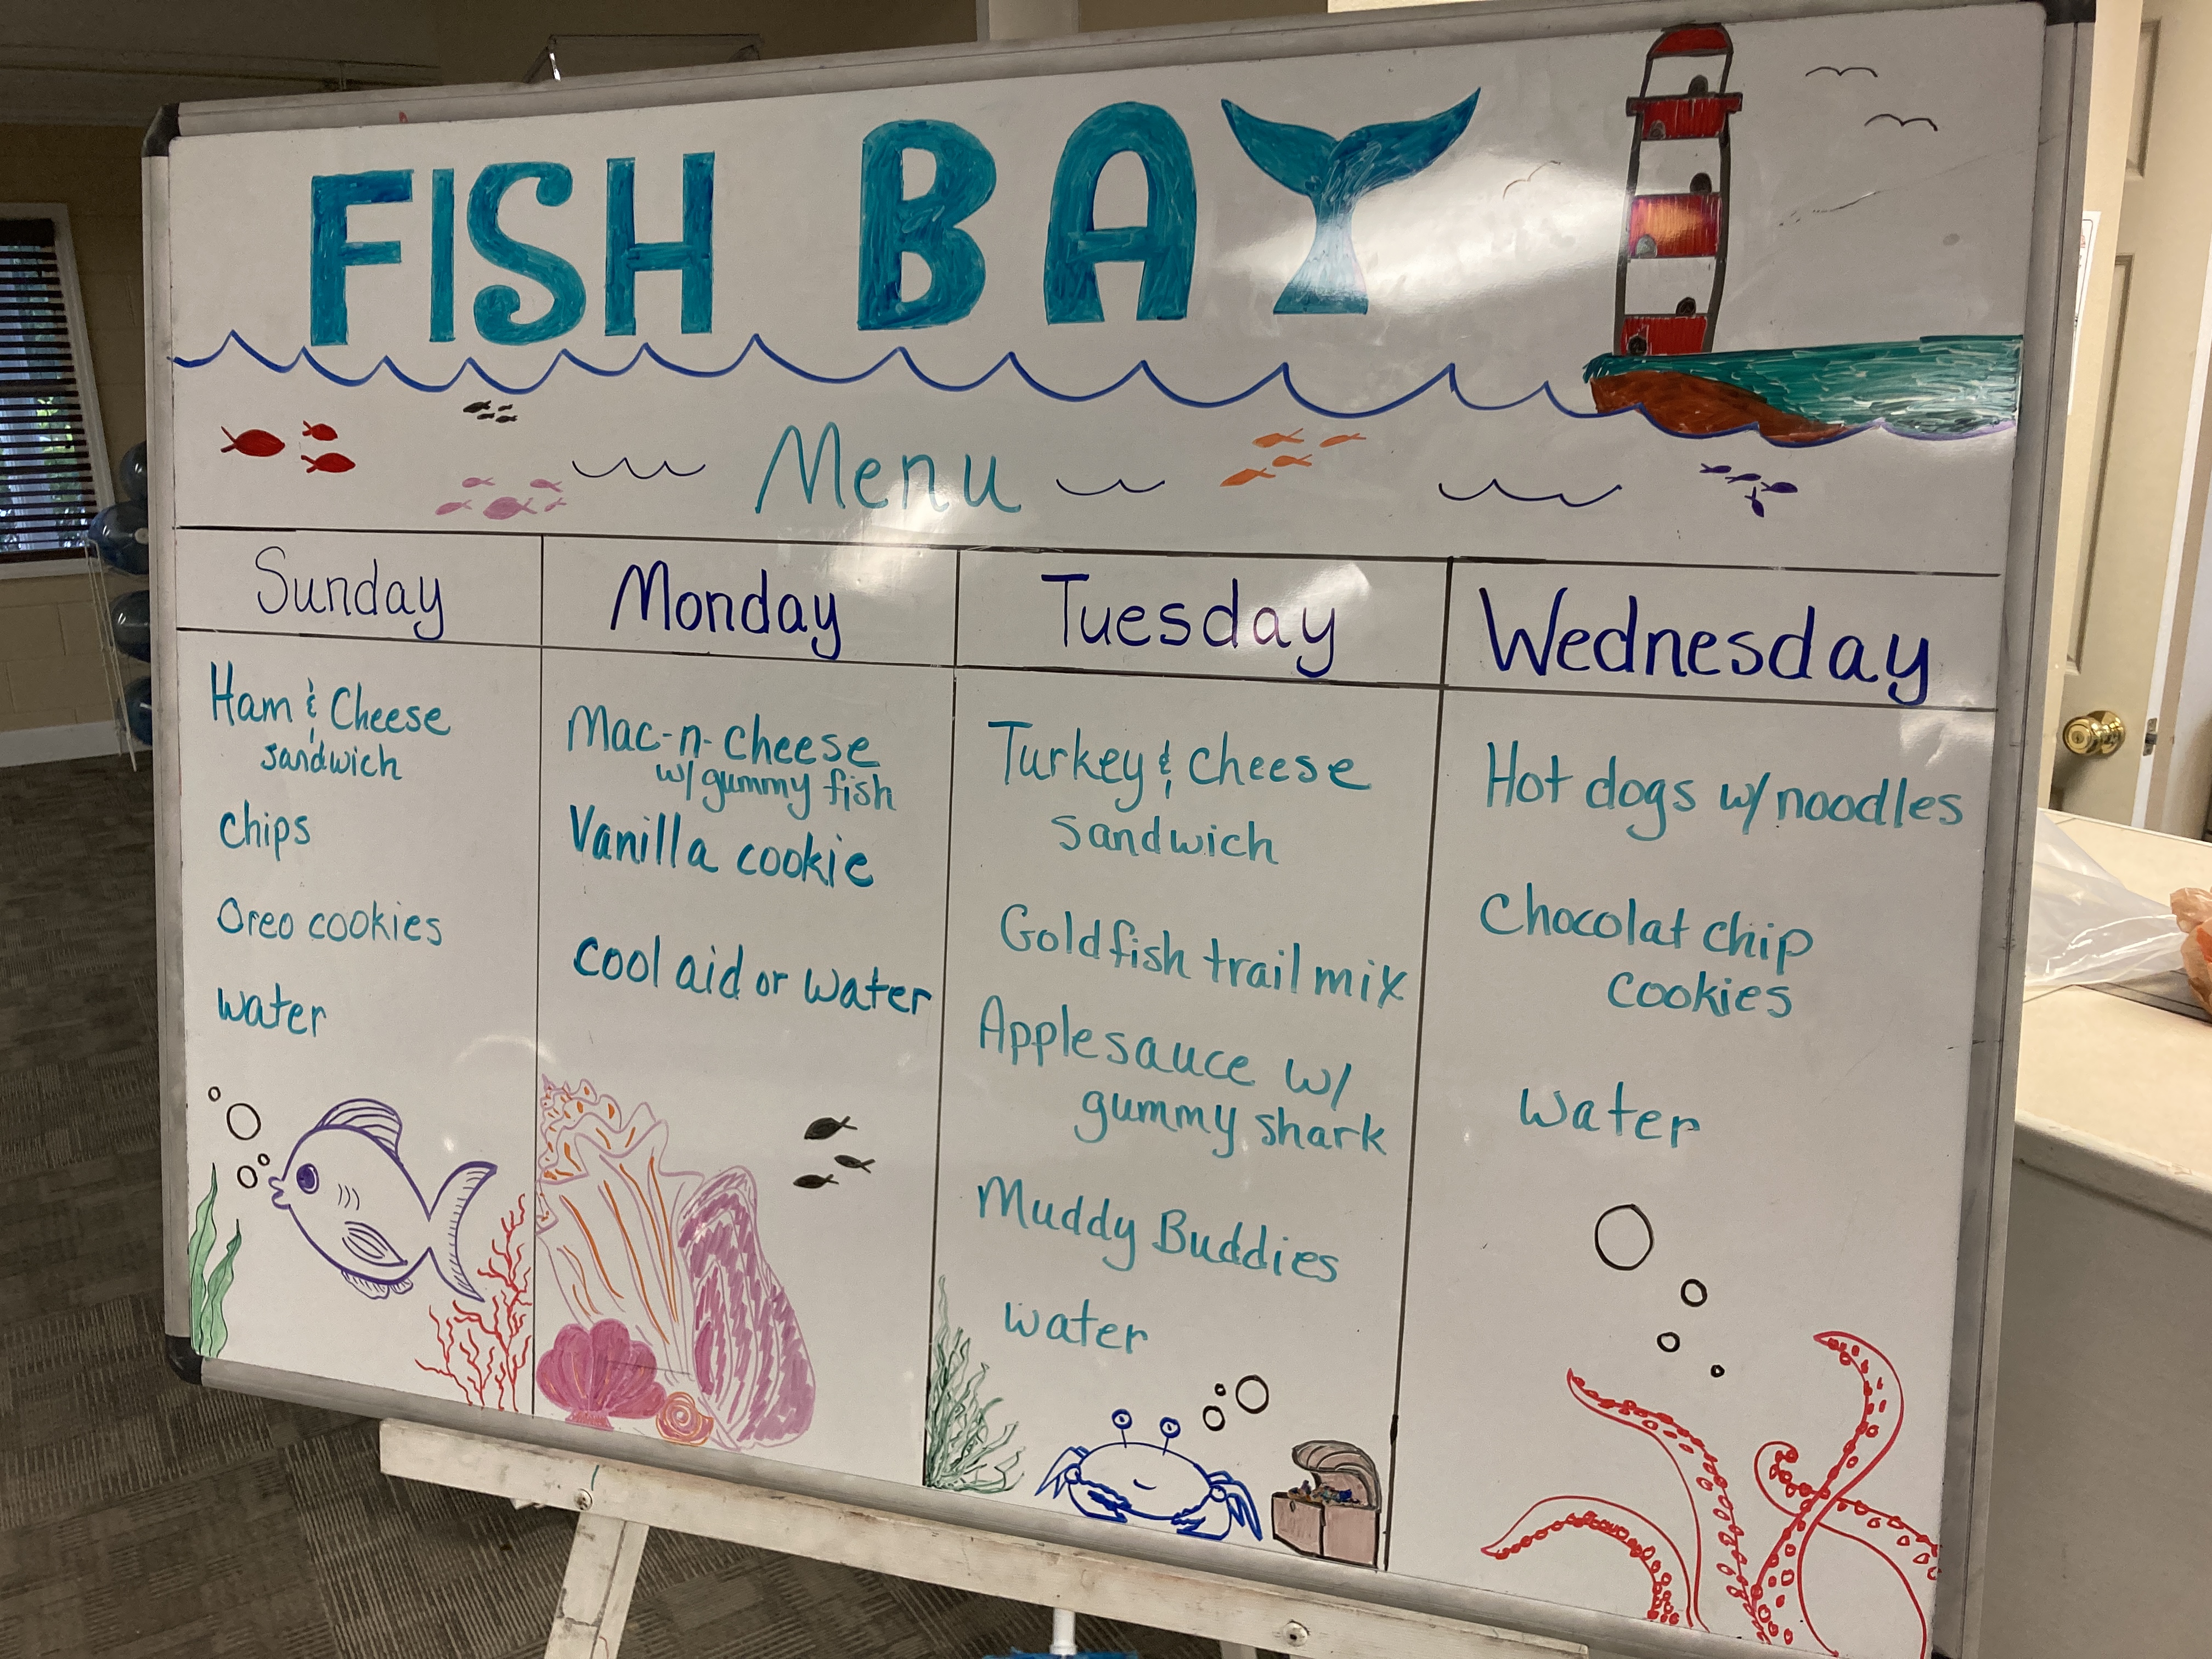 FISH BAY
Menu
Sunday
Ham & Cheese
sandwich
chips
Oreo cookies
water
Monday
Mac-n-cheese
w/ gummy fish
Vanilla cookie
cool aid or water
Tuesday
Turkey & cheese
sandwich
Goldfish trail mix
Applesauce w/
gummy shark
Muddy Buddies
water
Wednesday
Hot dogs w/ noodles
Chocolat chip
cookies
water